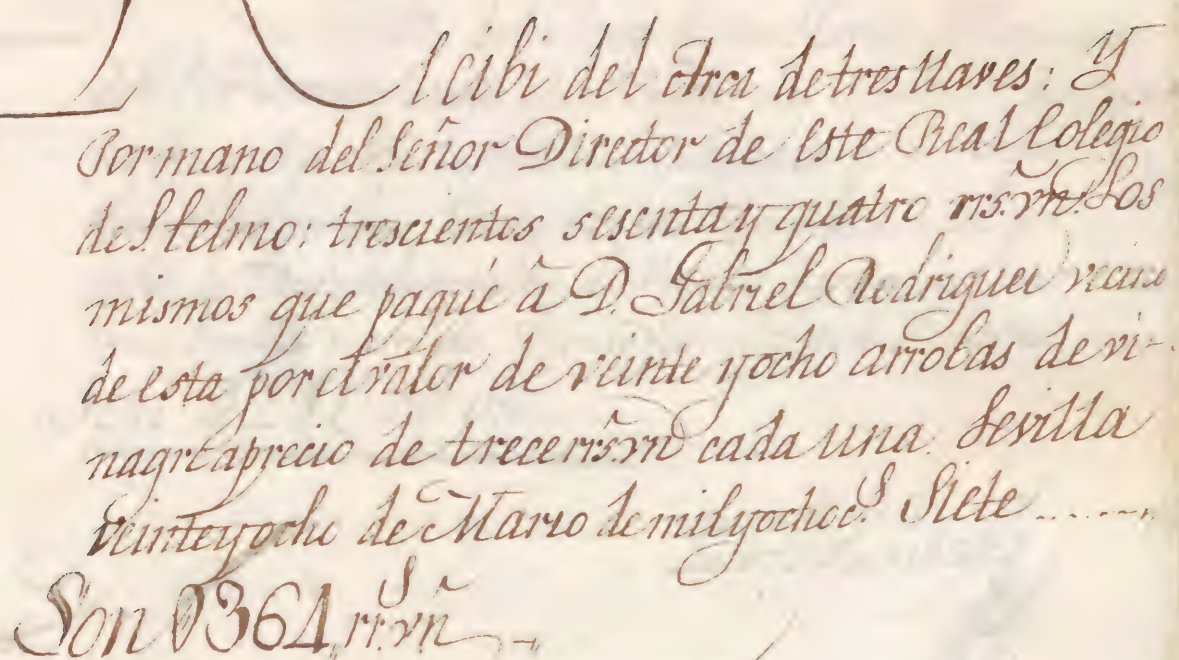 Recibi del Arca de tres llaves: Y
Por mano del Señor Director de este Real Colegio
de S. telmo: trescientos sesenta y quatro rrs. vñ. Los
mismos que pagué â D. Gabriel Rodriguez vecino
de esta por el valor de veinte y ocho arrobas de vi-
nagre a precio de trece rrs. vñ cada una. Sevilla
veinte y ocho de Marzo de mil y ochocs. Siete
Son 0364 rrs. vñ